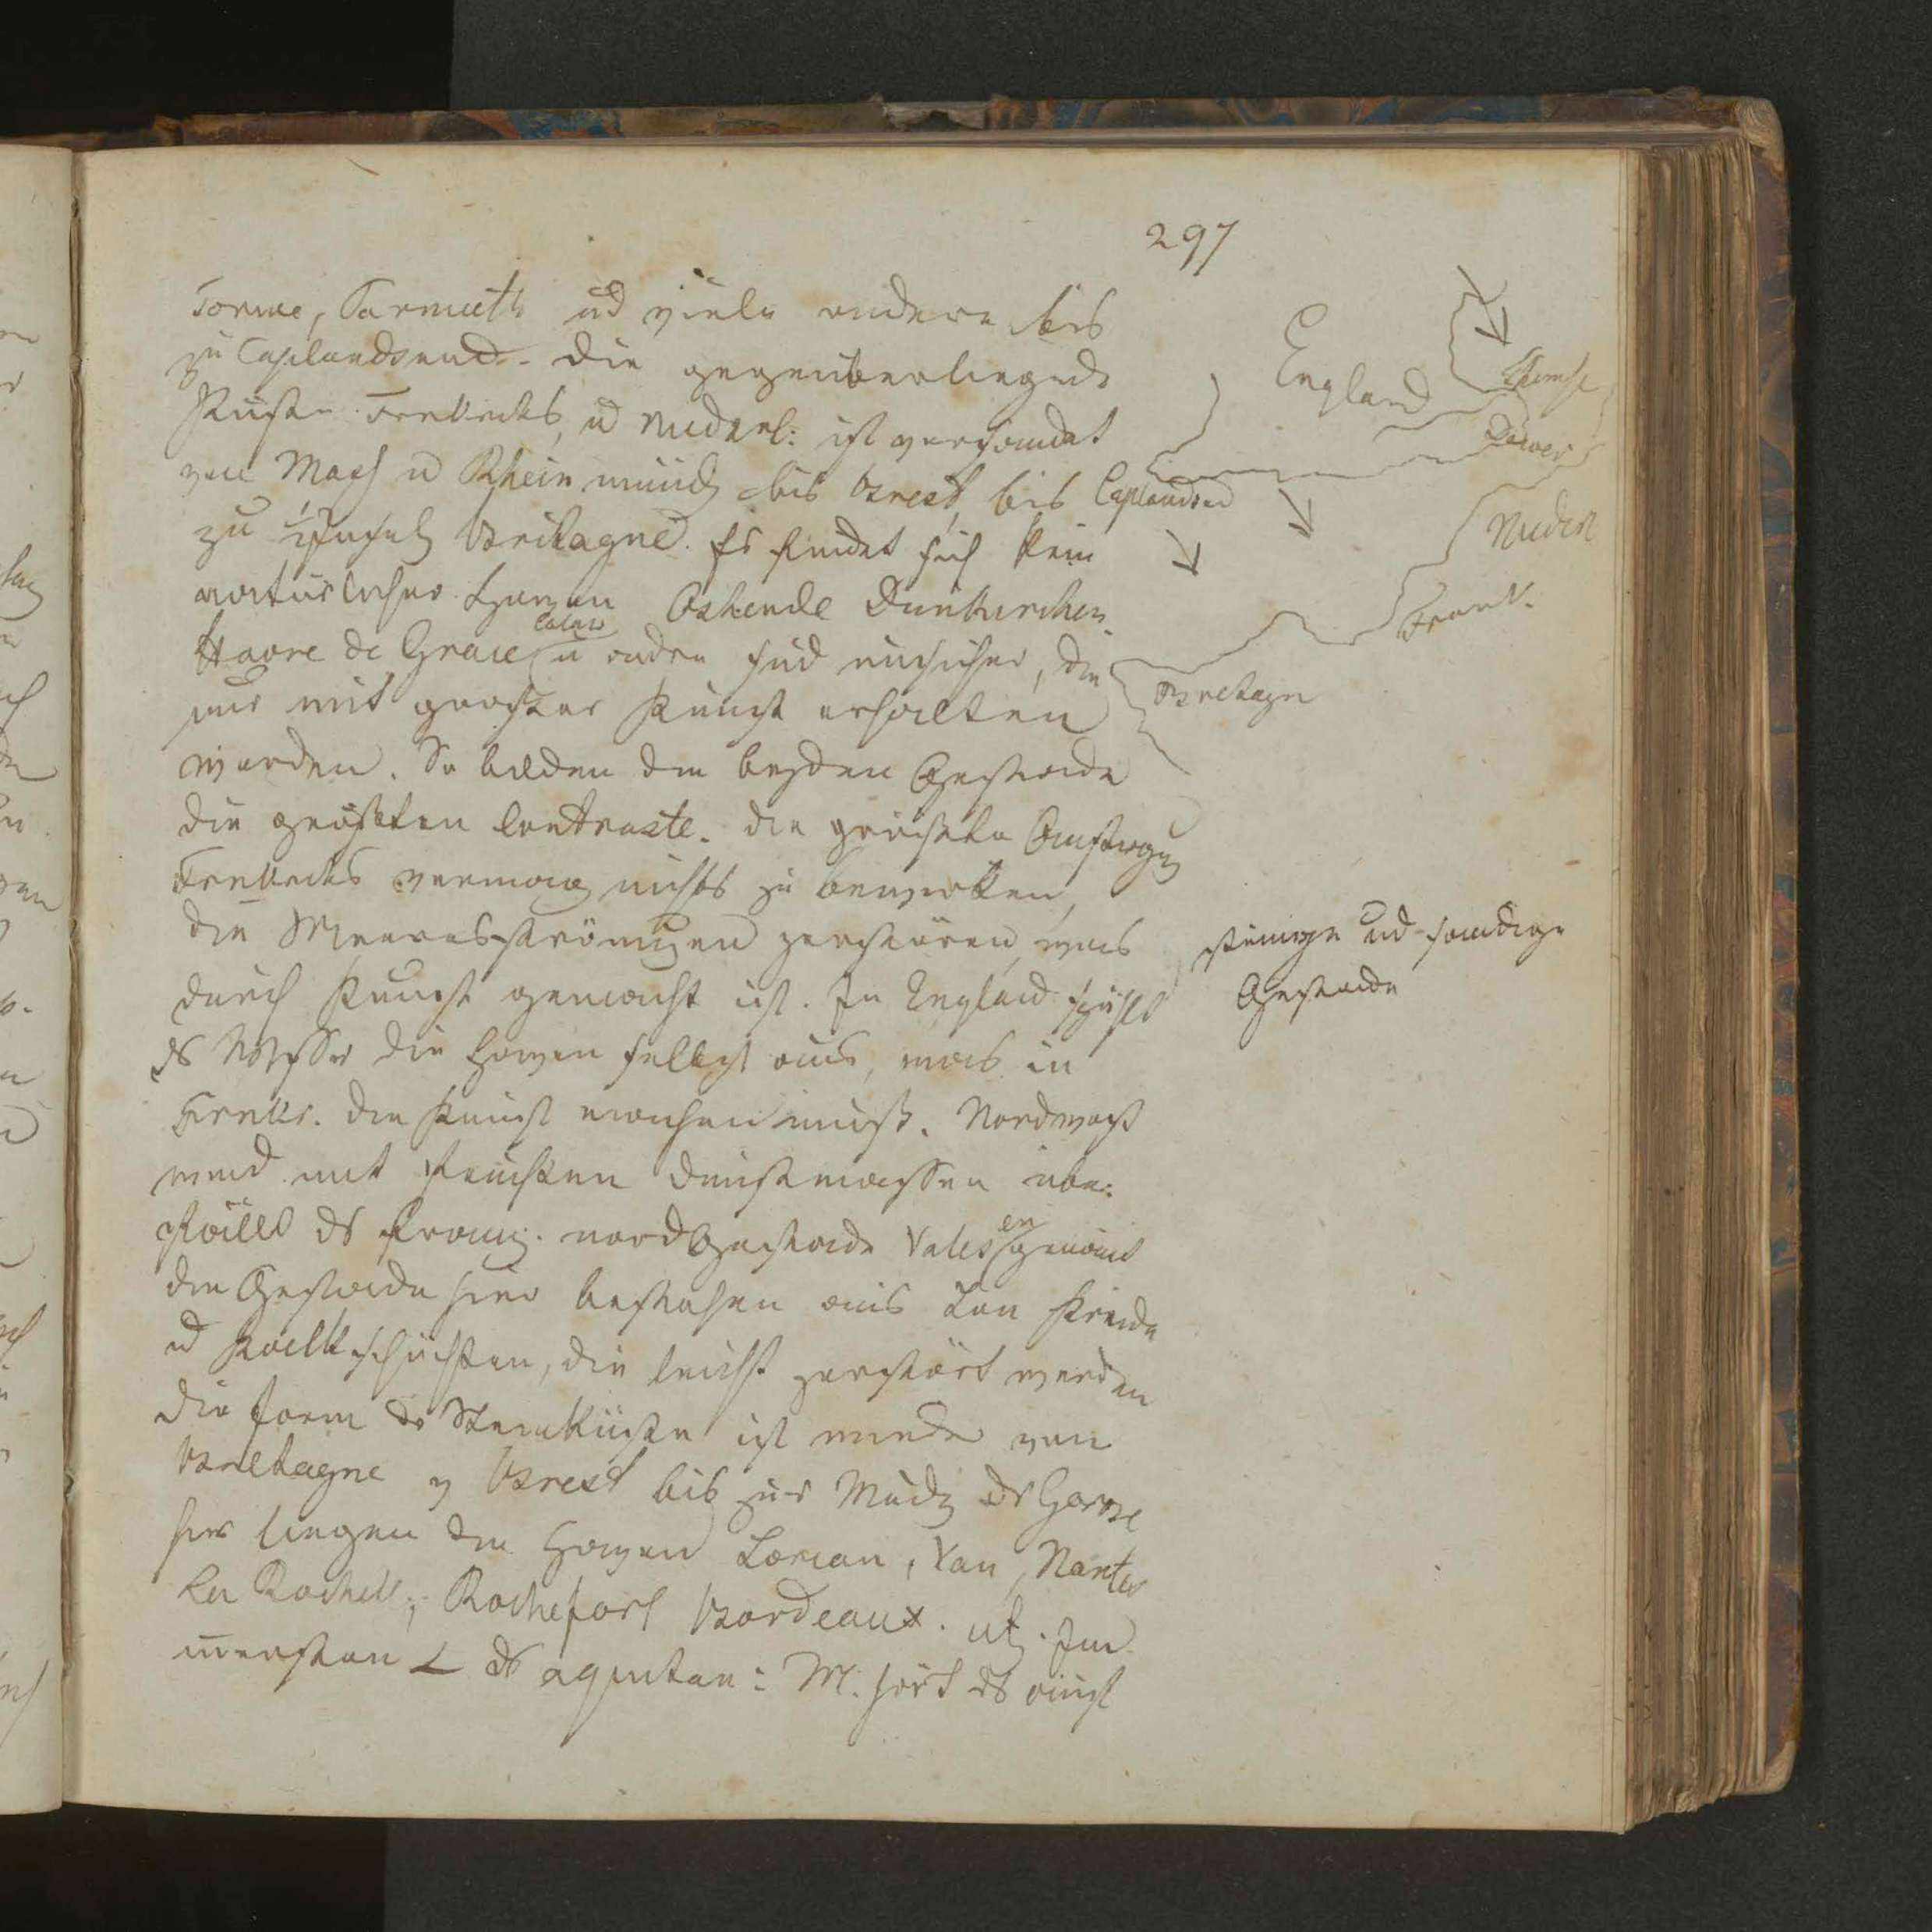 297
Torme, Farmuth ud viele andere bis
zu Caplandsend. Die gegenüberliegende
Küste Frkreichs, u Niederl: ist versandet
von Maas u Rheinmündg bis Brest, bis
zu Halbinsel Bretagne. Es findet sich kein
natürlicher Haven Ostende Dünkirchen
Calais
Havre de Grace u andre sind unsicher, die
nur mit großer Kunst erhalten
werden. So bilden die beyden Gestade
die größten Contraste. Die größte Anstrengung
Frkreichs vermag nichts zu bewirken,
die Meeresströmungen zerstören, was
durch Kunst gemacht ist. In England spühlt
ds Wasser die Haven selbst aus, was in
Frnkr. die Kunst machen muß. Nordwest
wind mit feuchten Dunstmassen über:
fällt ds franz. nord Gestade Valesen genannt
die Gestade hier bestehen aus Kreide
u Kalkschichten, die leicht zerstört werden
die Form der Steinküste ist wieder von
Bretagne v Brest bis zur Mündg der Garone
hier liegen die Haven Lorian, Van, Nantes
La Rochell, Rochefort Bordeaux. Im
innersten ∠ ds aquitan: M. hört ds
England
Themse
Dower
Caplandsend
Niederl
Frank.
Bretagne
steinige und sandige
Gestade